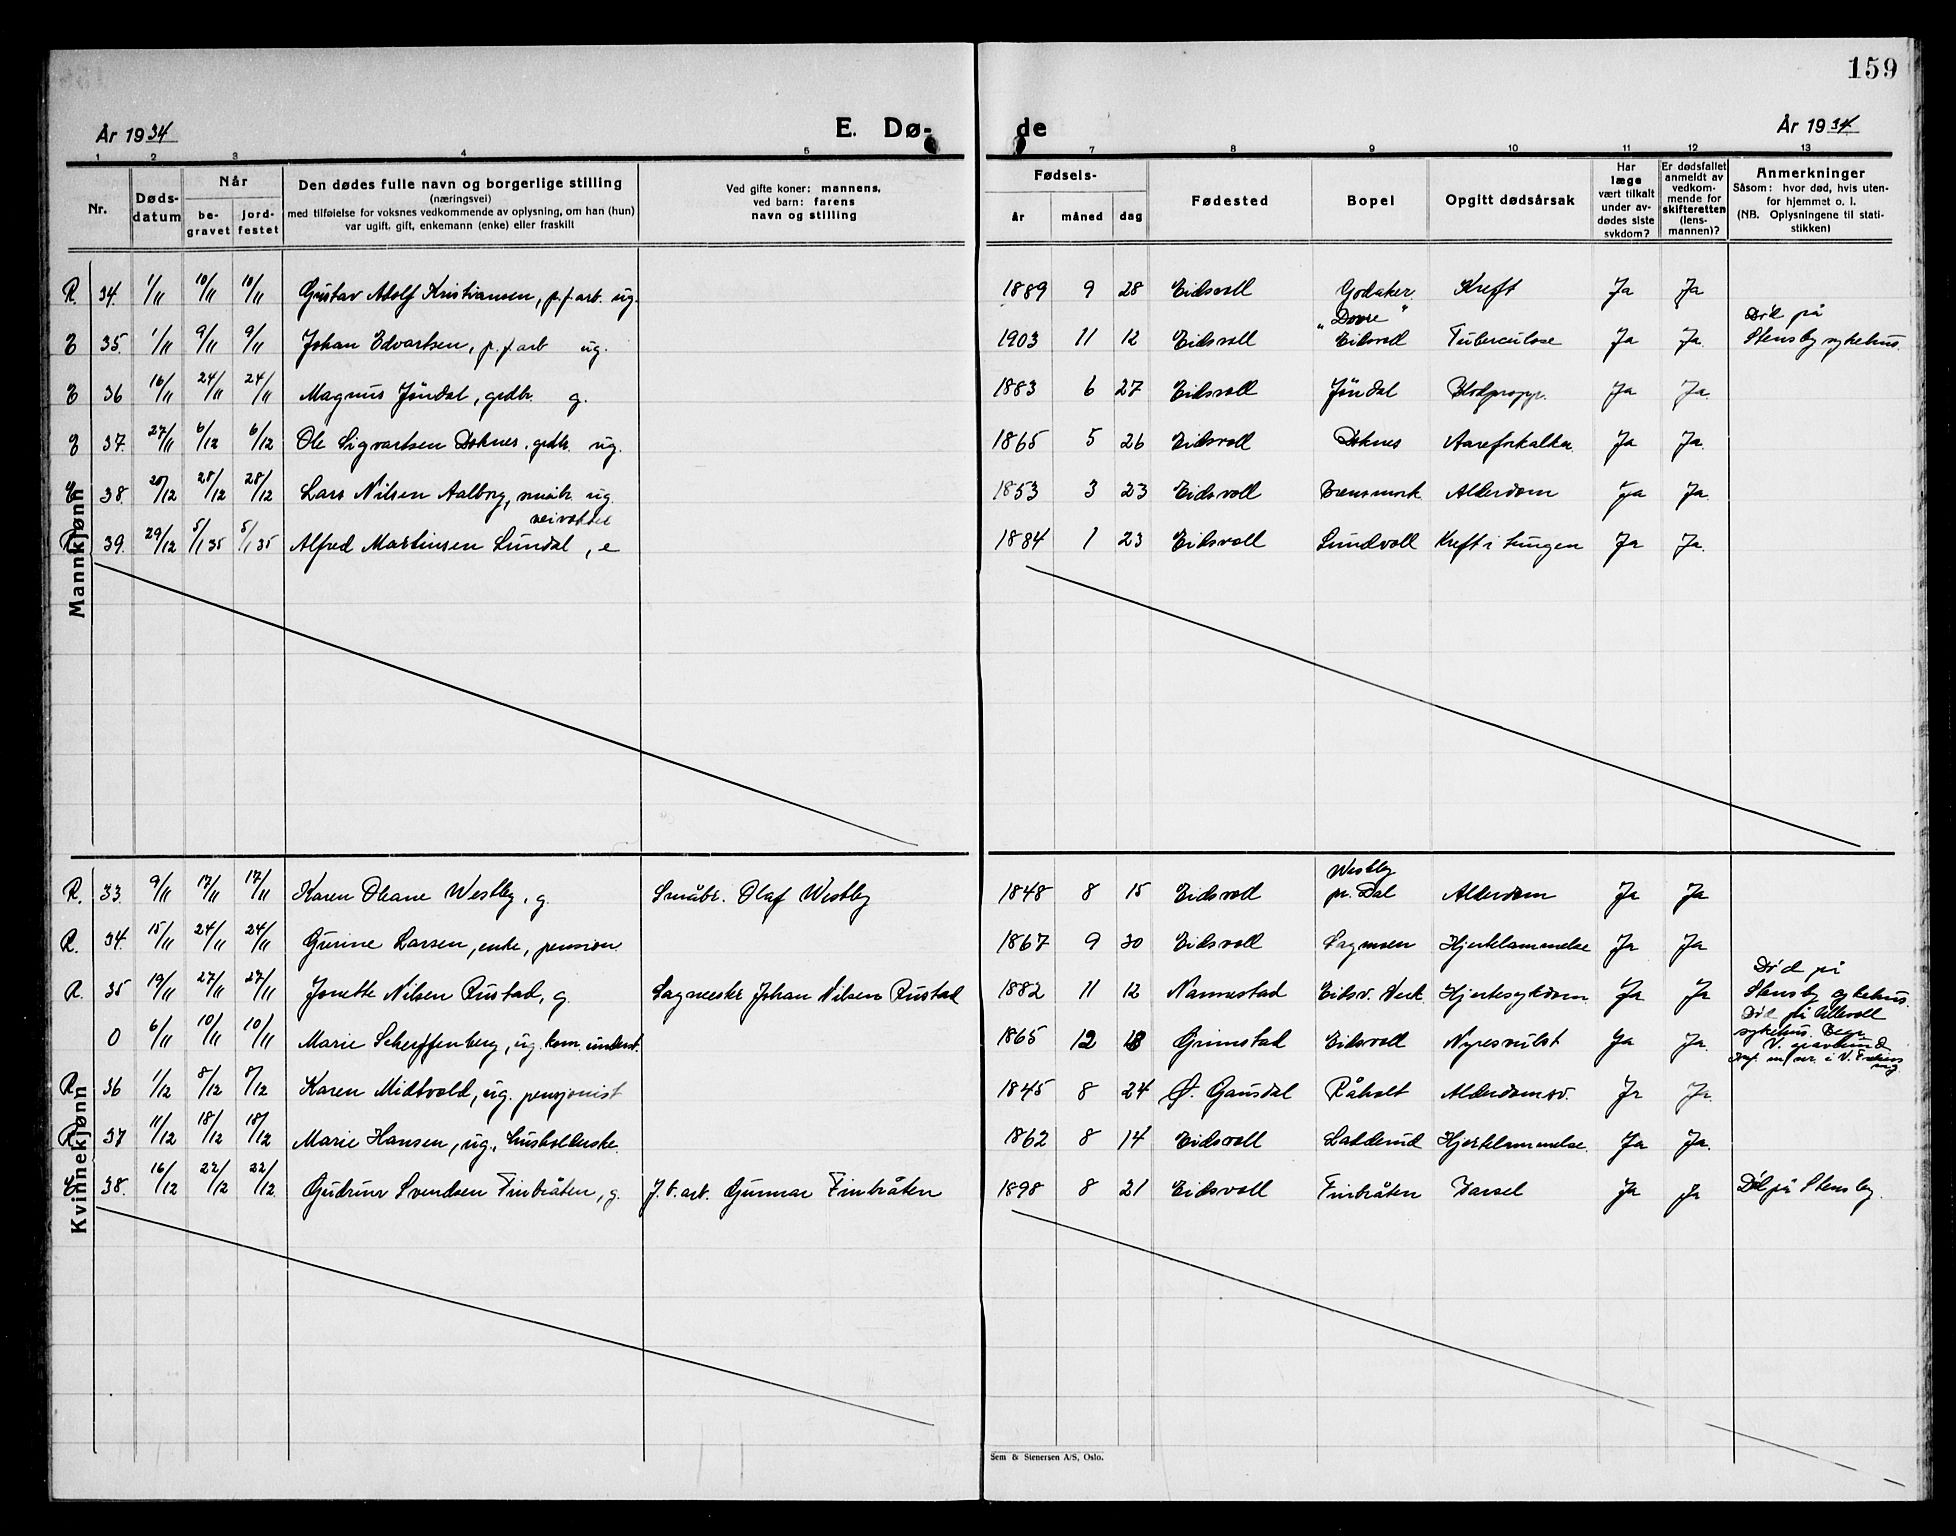 159
År 1934 E. Dø- de År 1934
1 2 3 4 5 7 8 9 10 11 12 13
Nr. Døds-datum Når be-gravet jord-festet
Den dødes fulle navn og borgerlige stilling
(næringsvei)
med tilføielse for voksnes vedkommende av oplysning, om han (hun)
var ugift, gift, enkemann (enke) eller fraskilt
Ved gifte koner: mannens,
ved barn: farens
navn og stilling
Fødsels- år måned dag
Fødested
Bopel
Opgitt dødsårsak
Har læge vært tilkalt under av-dødes siste sykdom?
Er dødsfallet anmeldt av vedkom-mende for skifteretten (lens-mannen)?
Anmerkninger
Såsom: hvor død, hvis uten-
for hjemmet o. l.
(NB. Oplysningene til stati-
stikken)
Mannkjønn
R. 34. 1/11 10/11 10/11 Gustav Adolf Kristiansen, p.f.arb. ug. 1889 9 28 Eidsvoll Godaker Kreft Ja Ja
E 35. 1/11 9/11 9/11 Johan Edvartsen, p.f.arb ug. 1903 11 12 Eidsvoll "Dovre" Eidsvoll Tuberculose Ja Ja. Død på Stensby sykehus.
E 36 16/11 24/11 24/11 Magnus Jøndal, grdbr. g. 1883 6 27 Eidsvoll Jøndal Blodpropp. Ja Ja.
E 37. 27/11 6/12 6/12 Ole Sigvartsen Doknes, grdbr. ug. 1865 5 26 Eidsvoll Doknes Aareforkalkn. Ja Ja.
E 38. 20/12 28/12 28/12 Lars Nilsen Aalborg, småbr. ug. 1853 3 23 Eidsvoll Brensmork Alderdom Ja Ja.
R 39. 29/12 5/1 35 5/1 35 Alfred Martinsen Lundal, veivokter e 1884 1 23 Eidsvoll Sundvoll Kreft i Lungen Ja Ja.
Kvinnekjønn
R. 33. 9/11 17/11 17/11 Karen Oleane Westby, g. Småbr. Olaf Westby 1848 8 15 Eidsvoll Westby pr. Dal Alderdom Ja Ja
R. 34. 15/11 24/11 24/11 Gurine Larsen, enke, pension. 1867 9 30 Eidsvoll Sagmoen Hjertelammelse Ja Ja
R. 35 19/11 27/11 27/11 Jonette Nilsen Rustad, g. Sagmester Johan Nilsen Rustad 1882 11 12 Nannestad Eidsv. Verk Hjertesykdom Ja Ja Død på Stensby sykehus.
0 6/11 10/11 10/11 Marie Scherffenberg, ug. kom. underst. 1865 12 Grimstad Eidsvoll Nyresvulst Ja Ja. Død på Ullevoll sykehus. Begr. V. gravlund
R. 36 1/12 8/12 8/12 Karen Midtvold, ug. pensjonist 1845 8 24 Ø. Gausdal Råholt Alderdomsv. Ja Ja.
R 37 11/12 18/12 18/12 Marie Hansen, ug., husholderske. 1862 8 14 Eidsvoll Ladderud Hjertelammelse. Ja Ja.
E 38. 16/12 22/12 22/12 Gudrun Svendsen Finbråten, g. J.b.arb. Gunnar Finbråten 1898 8 21 Eidsvoll Finbråten Barsel Ja Ja Død på Stensby.
Sem & Stenersen A/S, Oslo.